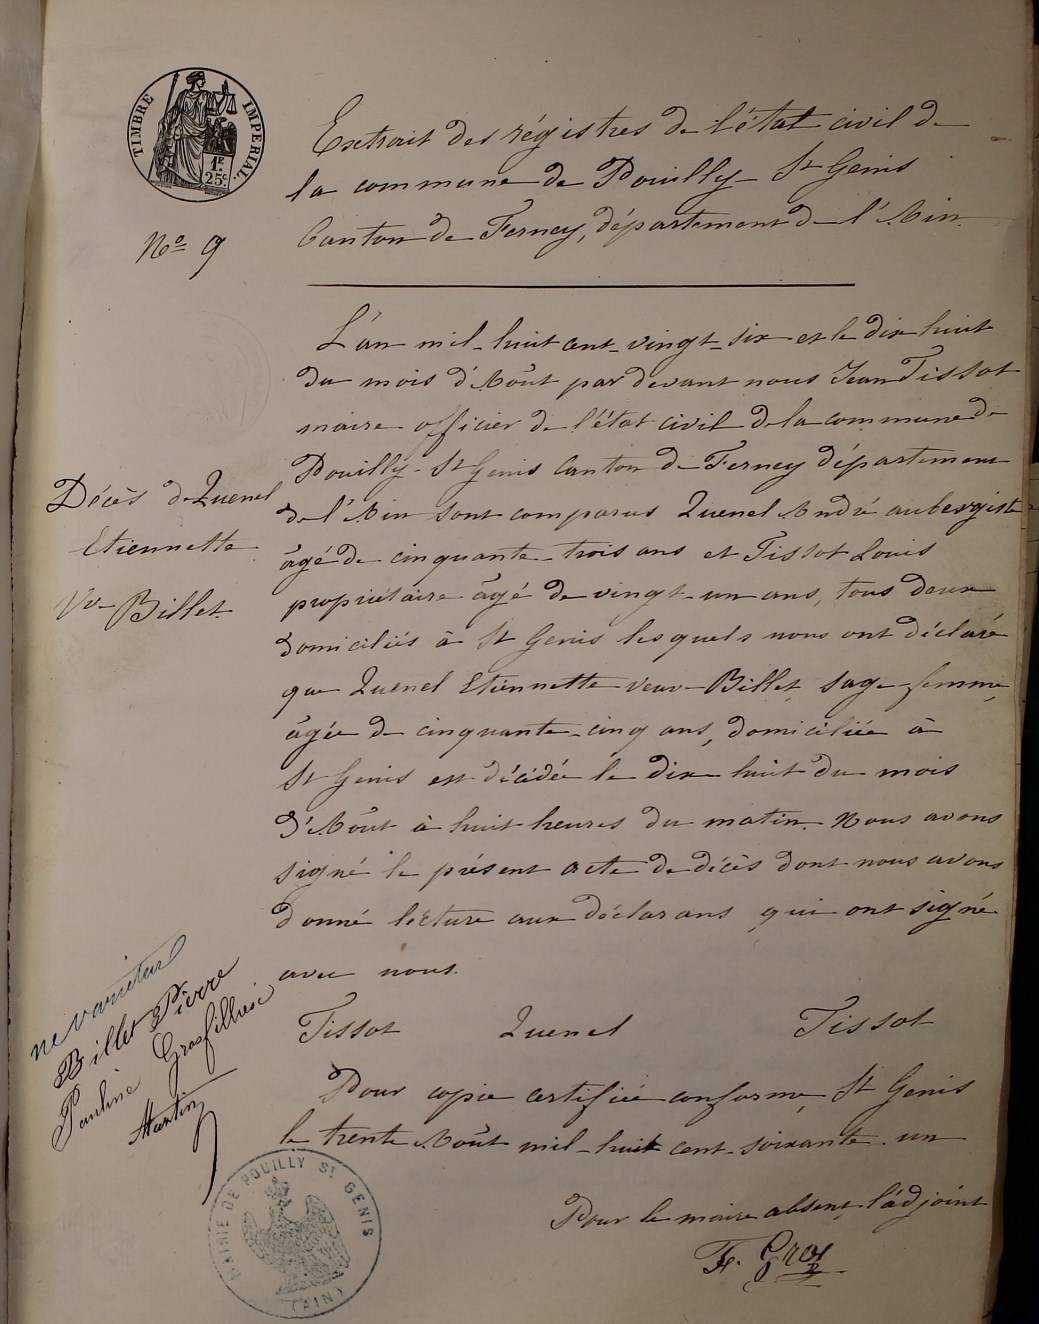 TIMBRE IMPERIAL
1F.
25c.
No 9
Extrait des régistres de l'état civil de
la commune de Pouilly St Genis
Canton de Ferney, département de l'Ain.
L'an mil-huit cent-vingt-six et le dix huit
du mois d'Août par devant nous Jean Tissot
maire officier de l'état civil de la commune de
Pouilly-St Genis Canton de Ferney département
de l'Ain sont comparus Quenel André aubergiste
âgé de cinquante-trois ans et Tissot Louis
propriétaire âgé de vingt-un ans, tous deux
domiciliés à St Genis lesquels nous ont déclaré
que Quenel Etiennette veuve Billet, sage-femme,
âgée de cinquante-cinq ans, domiciliée à
St Genis est décédée le dix huit du mois
d'Août à huit heures du matin. Nous avons
signé le présent acte de décès dont nous avons
donné lécture aux déclarans qui ont signé
avec nous.
Tissot Quenel Tissot
Pour copie certifiée conforme, St Genis
le trente Août mil-huit cent-soixante-un
Pour le maire absent, l'adjoint
F. Gros
Décès de Quenel
Etiennette
Vve Billet
ne varietur
Billet Pierre
Pauline Grosfillex
Martin
MAIRIE DE POUILLY ST. GENIS
(AIN)